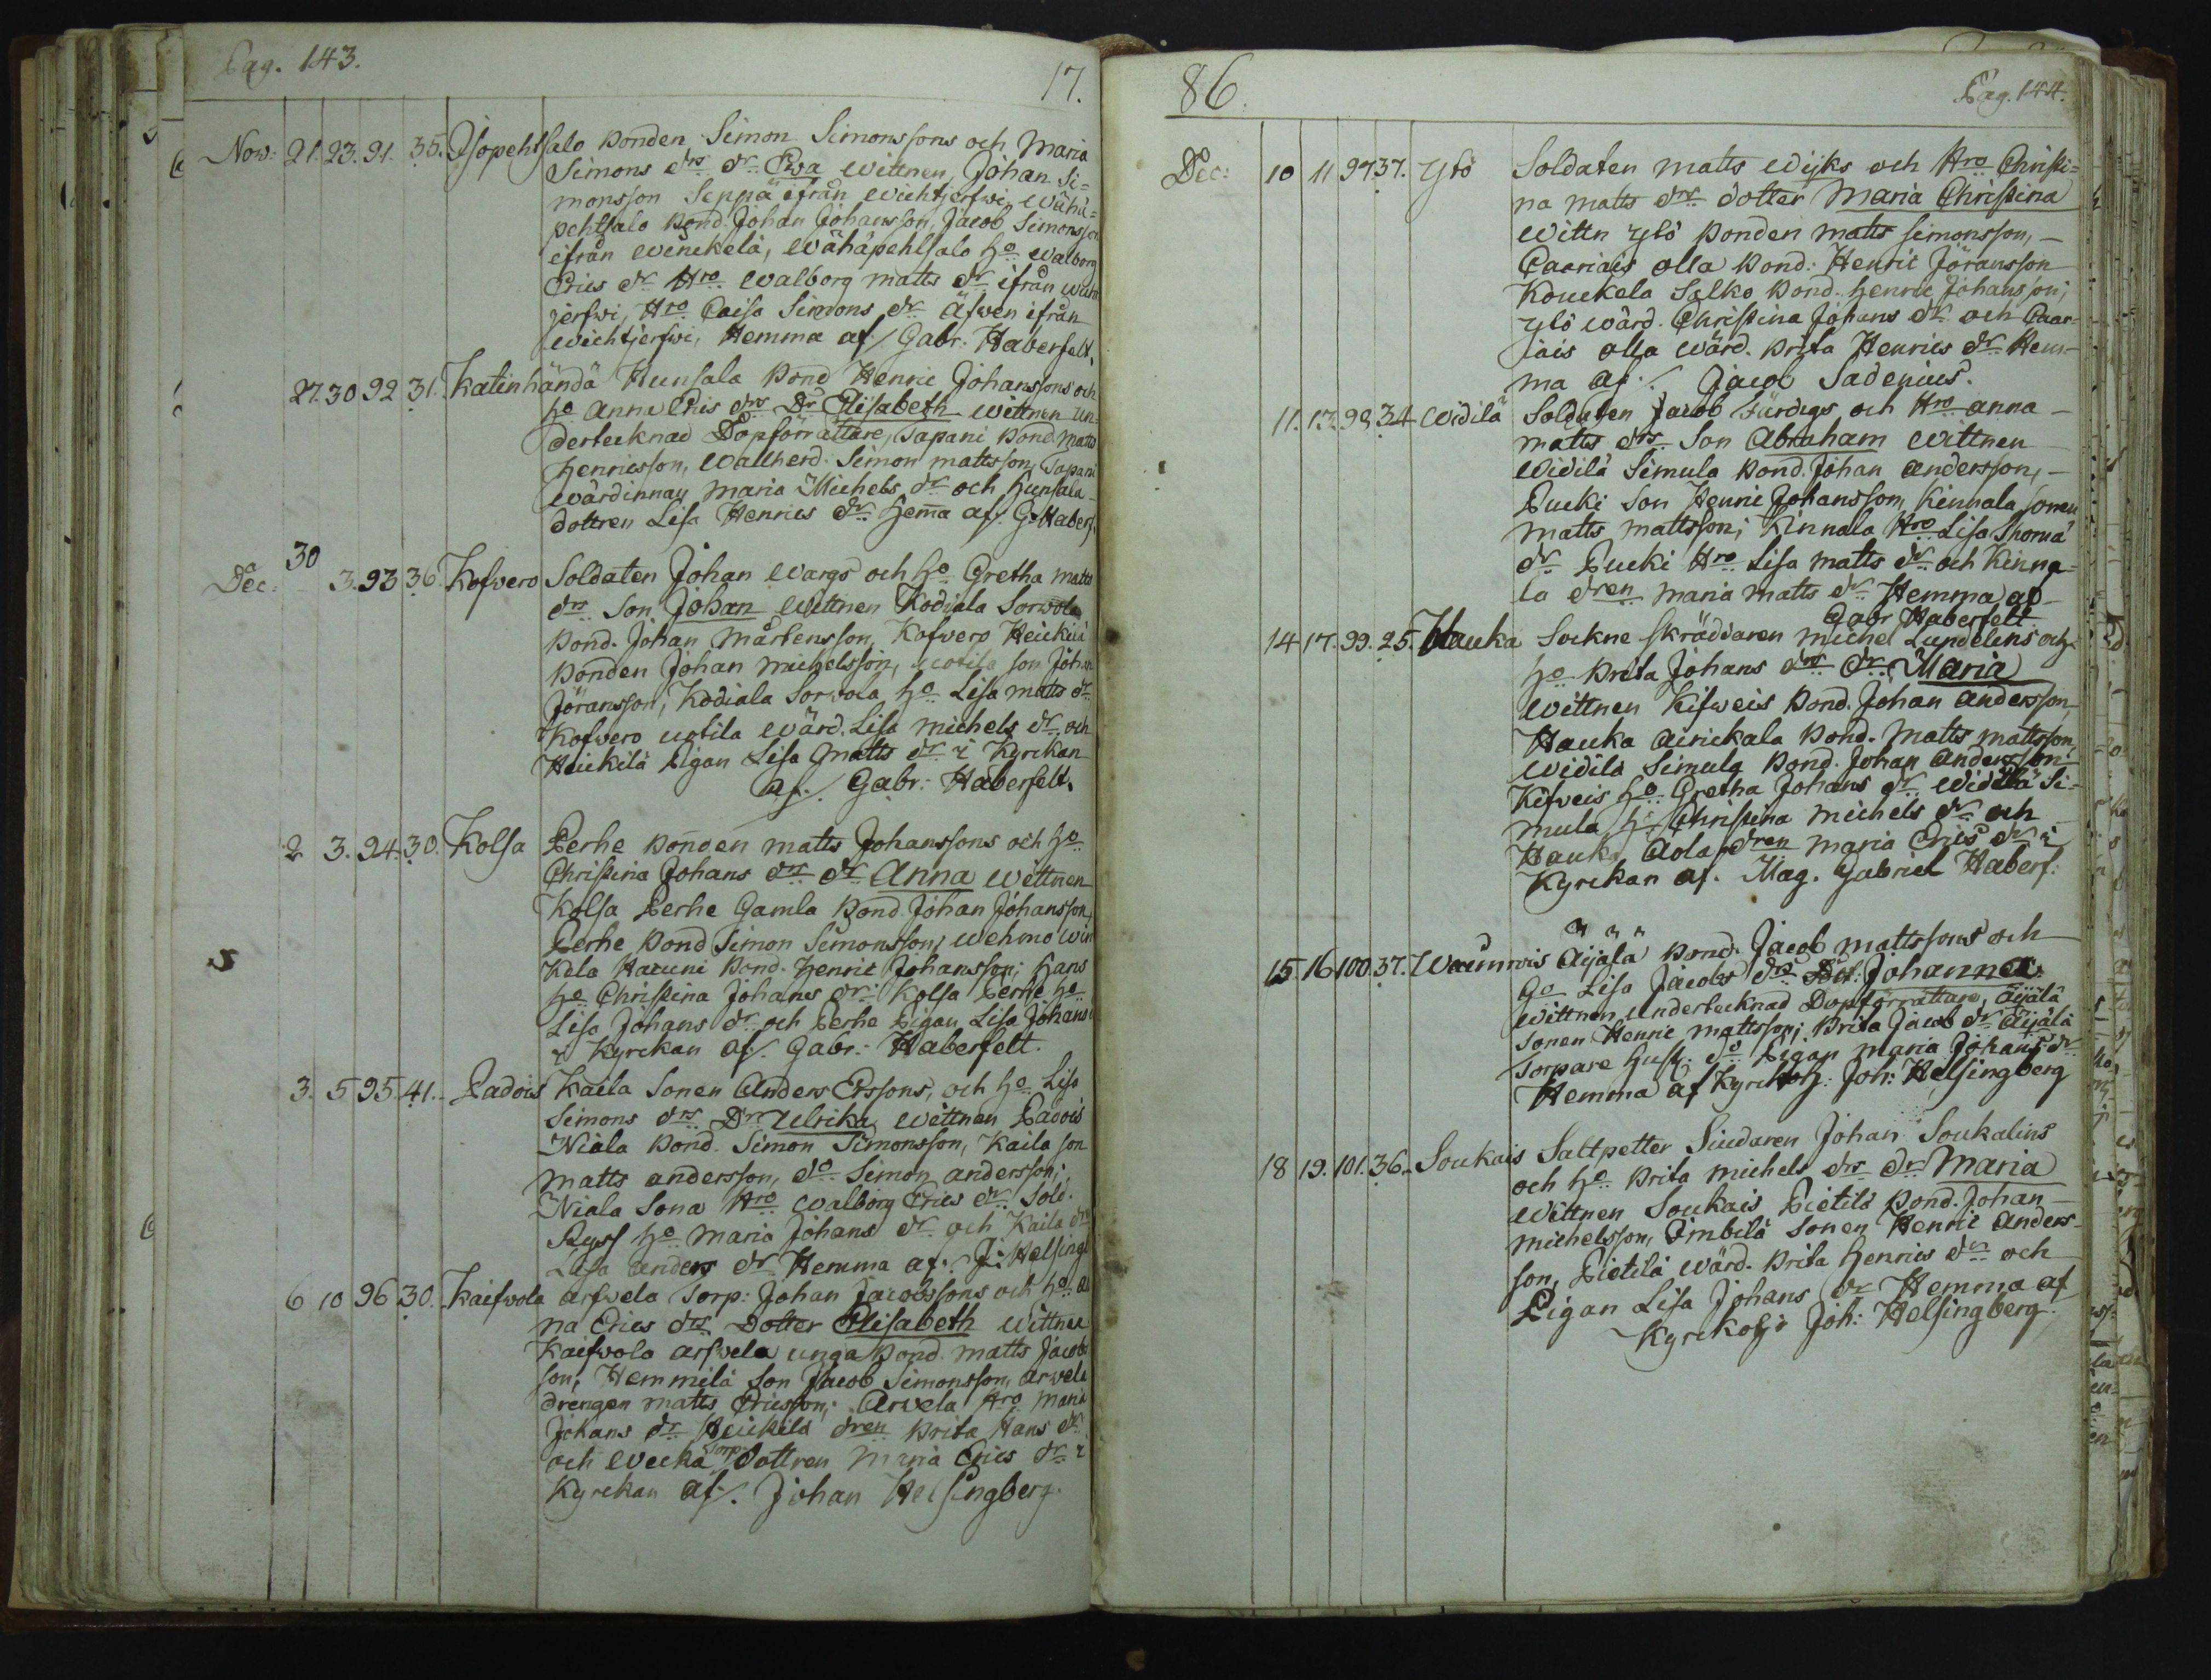 Pag. 143.
17.
Nov: 21. 23. 91. 35. Isopehtsalo Bonden Simon Simonssons och Maria
Simons drs dr Ewa wittnen, Johan Si=
monsson Seppä ifrån Wichtjerfwi, Wähä=
pehtsalo Bond. Johan Johansson, Jacob Simonsson
ifrån Wenekelä, Wähäpehtsalo ho Walborg
Erics dr Hro Walborg Matts dr ifrån
jerfwi, Hro Caisa Simons dr äfwen ifrån
Wichtjerfwi, Hemma af/. Gabr: Haberfelt.
27. 30 92 31. Katinhändä Hunsala Bond Henric Johanssons och
ho Anna Eris drs Dr Elisabeth wittnen un=
dertecknad Dopförrättare, Tapani Bond. Matts
Henricsson, Wallherd. Simon Mattsson, Tapani
Wärdinnan Maria Michels dr och Hunsala
dottren Lisa Henrics dr Hema af/. G. Haberf.
Dec: 30 3. 93 36. Kofwero Soldaten Johan Wargs och ho Gretha Matts
drs Son Johan Wittnen Kodiala Sorwola
Bond. Johan Mårtensson, Kofwero Heickilä
Bonden Johan Michelsson, uotila son Johan
Jöransson, Kodiala Sorwola ho Lisa Matts dr
Kofwero uotila Wärd. Lisa Michels dr och
Heickilä Pigan Lisa Matts dr i Kyrckan
af/. Gabr: Haberfelt.
2 3. 94. 30. Kolsa Perhe Bonden Matts Johanssons och ho
Christina Johans drs dr Anna Wittnen
Kolsa Perhe Gamla Bond. Johan Johansson,
Perhe Bond Simon Simonsson; Wehmo Win
kela Bond. Henric Johansson; Hans
ho Christina Johans dr; Kolsa Perhe ho
Lisa Johans dr och Perhe Pigan Lisa Johans
i Kyrckan af/. Gabr: Haberfelt.
3. 5 95. 41. Padois Kaila Sonen Anders Erssons, och ho Lisa
Simons drs Dr Ulrika wittnen Padois
Niala Bond. Simon Simonsson, Kaila son
Matts Andersson, do Simon Andersson;
Niala Sona Hro Walborg Erics dr Sold.
Ryss ho Maria Johans dr och Kaila dr
Lisa Anders dr Hemma af/. J: Helsingb
6 10 96 30. Kaifwola Arfwela Torp: Johan Jacobssons och ho An
na Erics drs Dotter Elisabeth Wittnen
Kaifwola Arfwela unga Bond. Matts Jacobs
son, Hemmilä Son Jacob Simonsson, Arwela
drengen Matts Ericsson; Arvela Hro Maria
Johans dr Heickilä dren Brita Hans dr
och Weckä Torp: dottren Maria Erics dr i
Kyrckan af/. Johan Helsingberg.
86.
Pag. 144.
Dec: 10 11 97 37. Ylö Soldaten Matts Wijks och Hro Christi=
na Matts drs dotter Maria Christina
Wittn Ylö Bonden Matts Simonsson, –
Caariais Olla Bond: Henric Jöransson
Kouckela Salko Bond. Henric Johansson;
Ylö wärd. Christina Johans dr och Caar=
iais Olla wärd. Brita Henrics dr Hem=
ma af/. Jacob Sadenius.
11. 13. 98 34 Widilä Soldaten Jacob Färdigs och Hro Anna –
Matts drs Son Abraham Wittnen
Widilä Simula Bond. Johan Andersson, –
Pucki Son Henric Johansson, Kinnala sonen
Matts Mattsson; Kinnala Hro Lisa Thomä
dr Pucki Hro Lisa Matts dr och Kinna=
la dren Maria Matts dr Hemma af
Gabr Haberfelt
14 17. 99. 25. Hauka Sockne Skräddaren Michel Lundelins och
ho Brita Johans drs Dr Maria
Wittnen Kifweis Bond. Johan Andersson,
Hauka Airickala Bond. Matts Mattsson,
Widilä Simula Bond. Johan Andersson
Kifweis ho Gretha Johans dr Widilä Si=
mula ho Christina Michels dr och
Hauka Aola dren Maria Erics dr i
Kyrckan af. Mag. Gabriel Haberf:
15. 16 100. 37. Waimois Äijälä Bond. Jacob Mattssons och
ho Lisa Jacobs drs Dot: Johanna
Wittnen undertecknad Dopförrättare, Äijälä
Sonen Henric Mattsson; Brita Jacob dr Äijälä
Torpare hust: do Pigan Maria Johans dr
Hemma af Kyrckoh: Joh: Helsingberg
18 19. 101. 36. Soukais Saltpetter Siudaren Johan Soukalins
och ho Brita Michels drs dr Maria
Wittnen Soukais Pietilä Bond. Johan
Michelsson,Imbilä Sonen Henric Anders=
son, Pietilä wärd. Brita Henrics dr och
Pigan Lisa Johans dr Hemma af
Kyrckohj: Joh: Helsingberg.